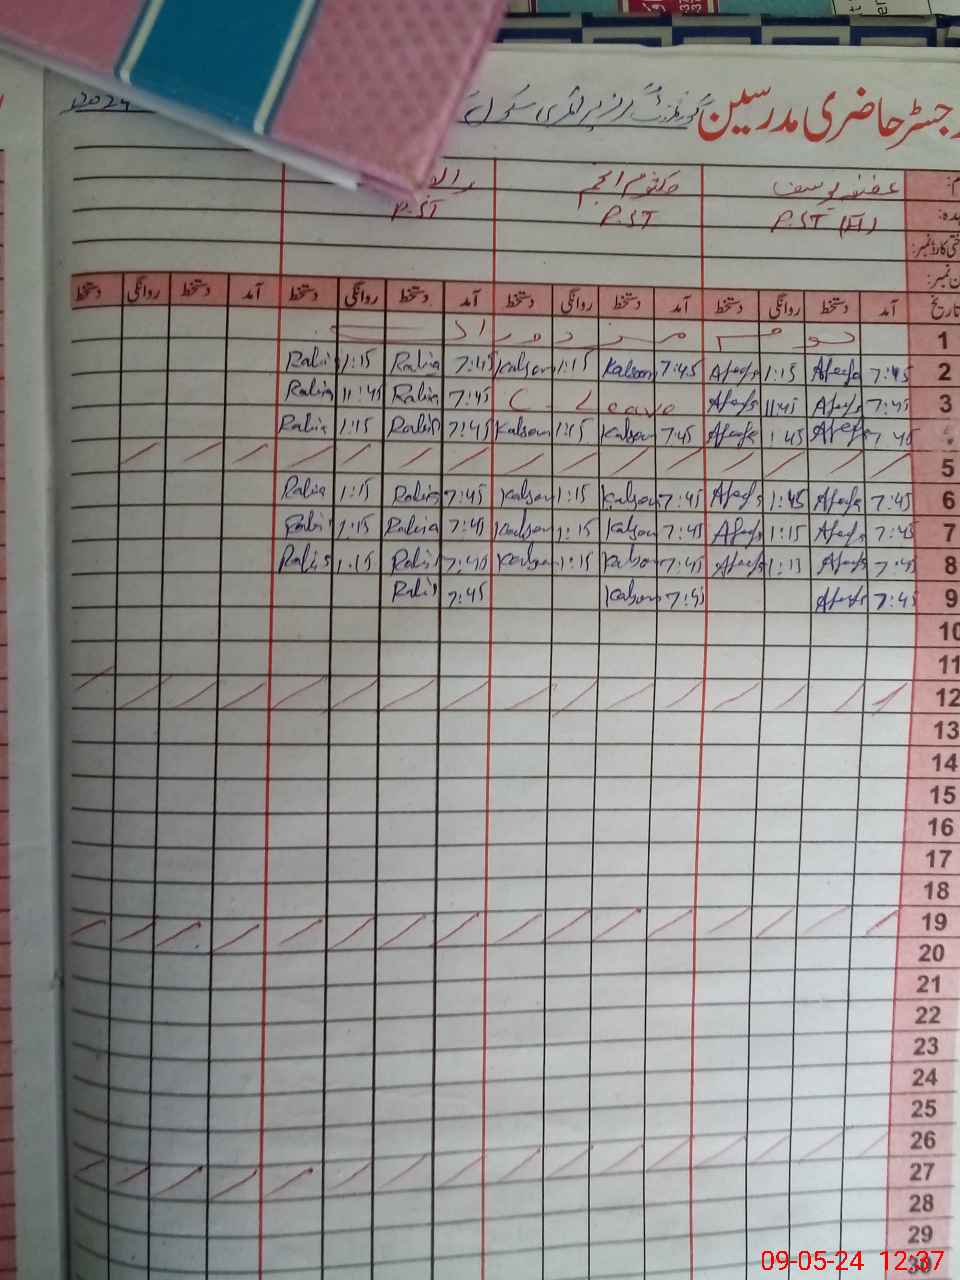 رجسٹر حاضری مدرسین گورنمنٹ گرلز پرائمری سکول 2024
عفیفہ یوسف کلثوم انجم
P.ST (H) P.ST
تاریخ آمد دستخط روانگی دستخط آمد دستخط روانگی دستخط آمد دستخط روانگی دستخط آمد دستخط روانگی دستخط
1 یوم مزدوراں
Rabia 1:15 Rabia 7:45 Kalsoom 1:15 Kalsoom 7:45 Afeefa 1:15 Afeefa 7:45 2
Rabia 11:45 Rabia 7:45 C - Leave Afeefa 11:45 Afeefa 7:45 3
Rabia 1:15 Rabia 7:45 Kalsoom 1:15 Kalsoom 7:45 Afeefa 1:45 Afeefa 7:45
5
Rabia 1:15 Rabia 7:45 Kalsoom 1:15 Kalsoom 7:45 Afeefa 1:45 Afeefa 7:45 6
Rabia 1:15 Rabia 7:45 Kalsoom 1:15 Kalsoom 7:45 Afeefa 1:15 Afeefa 7:45 7
Rabia 1:15 Rabia 7:45 Kalsoom 1:15 Kalsoom 7:45 Afeefa 1:15 Afeefa 7:45 8
Rabia 7:45 Kalsoom 7:45 Afeefa 7:45 9
10
11
12
13
14
15
16
17
18
19
20
21
22
23
24
25
26
27
28
29
30
09-05-24 12:37